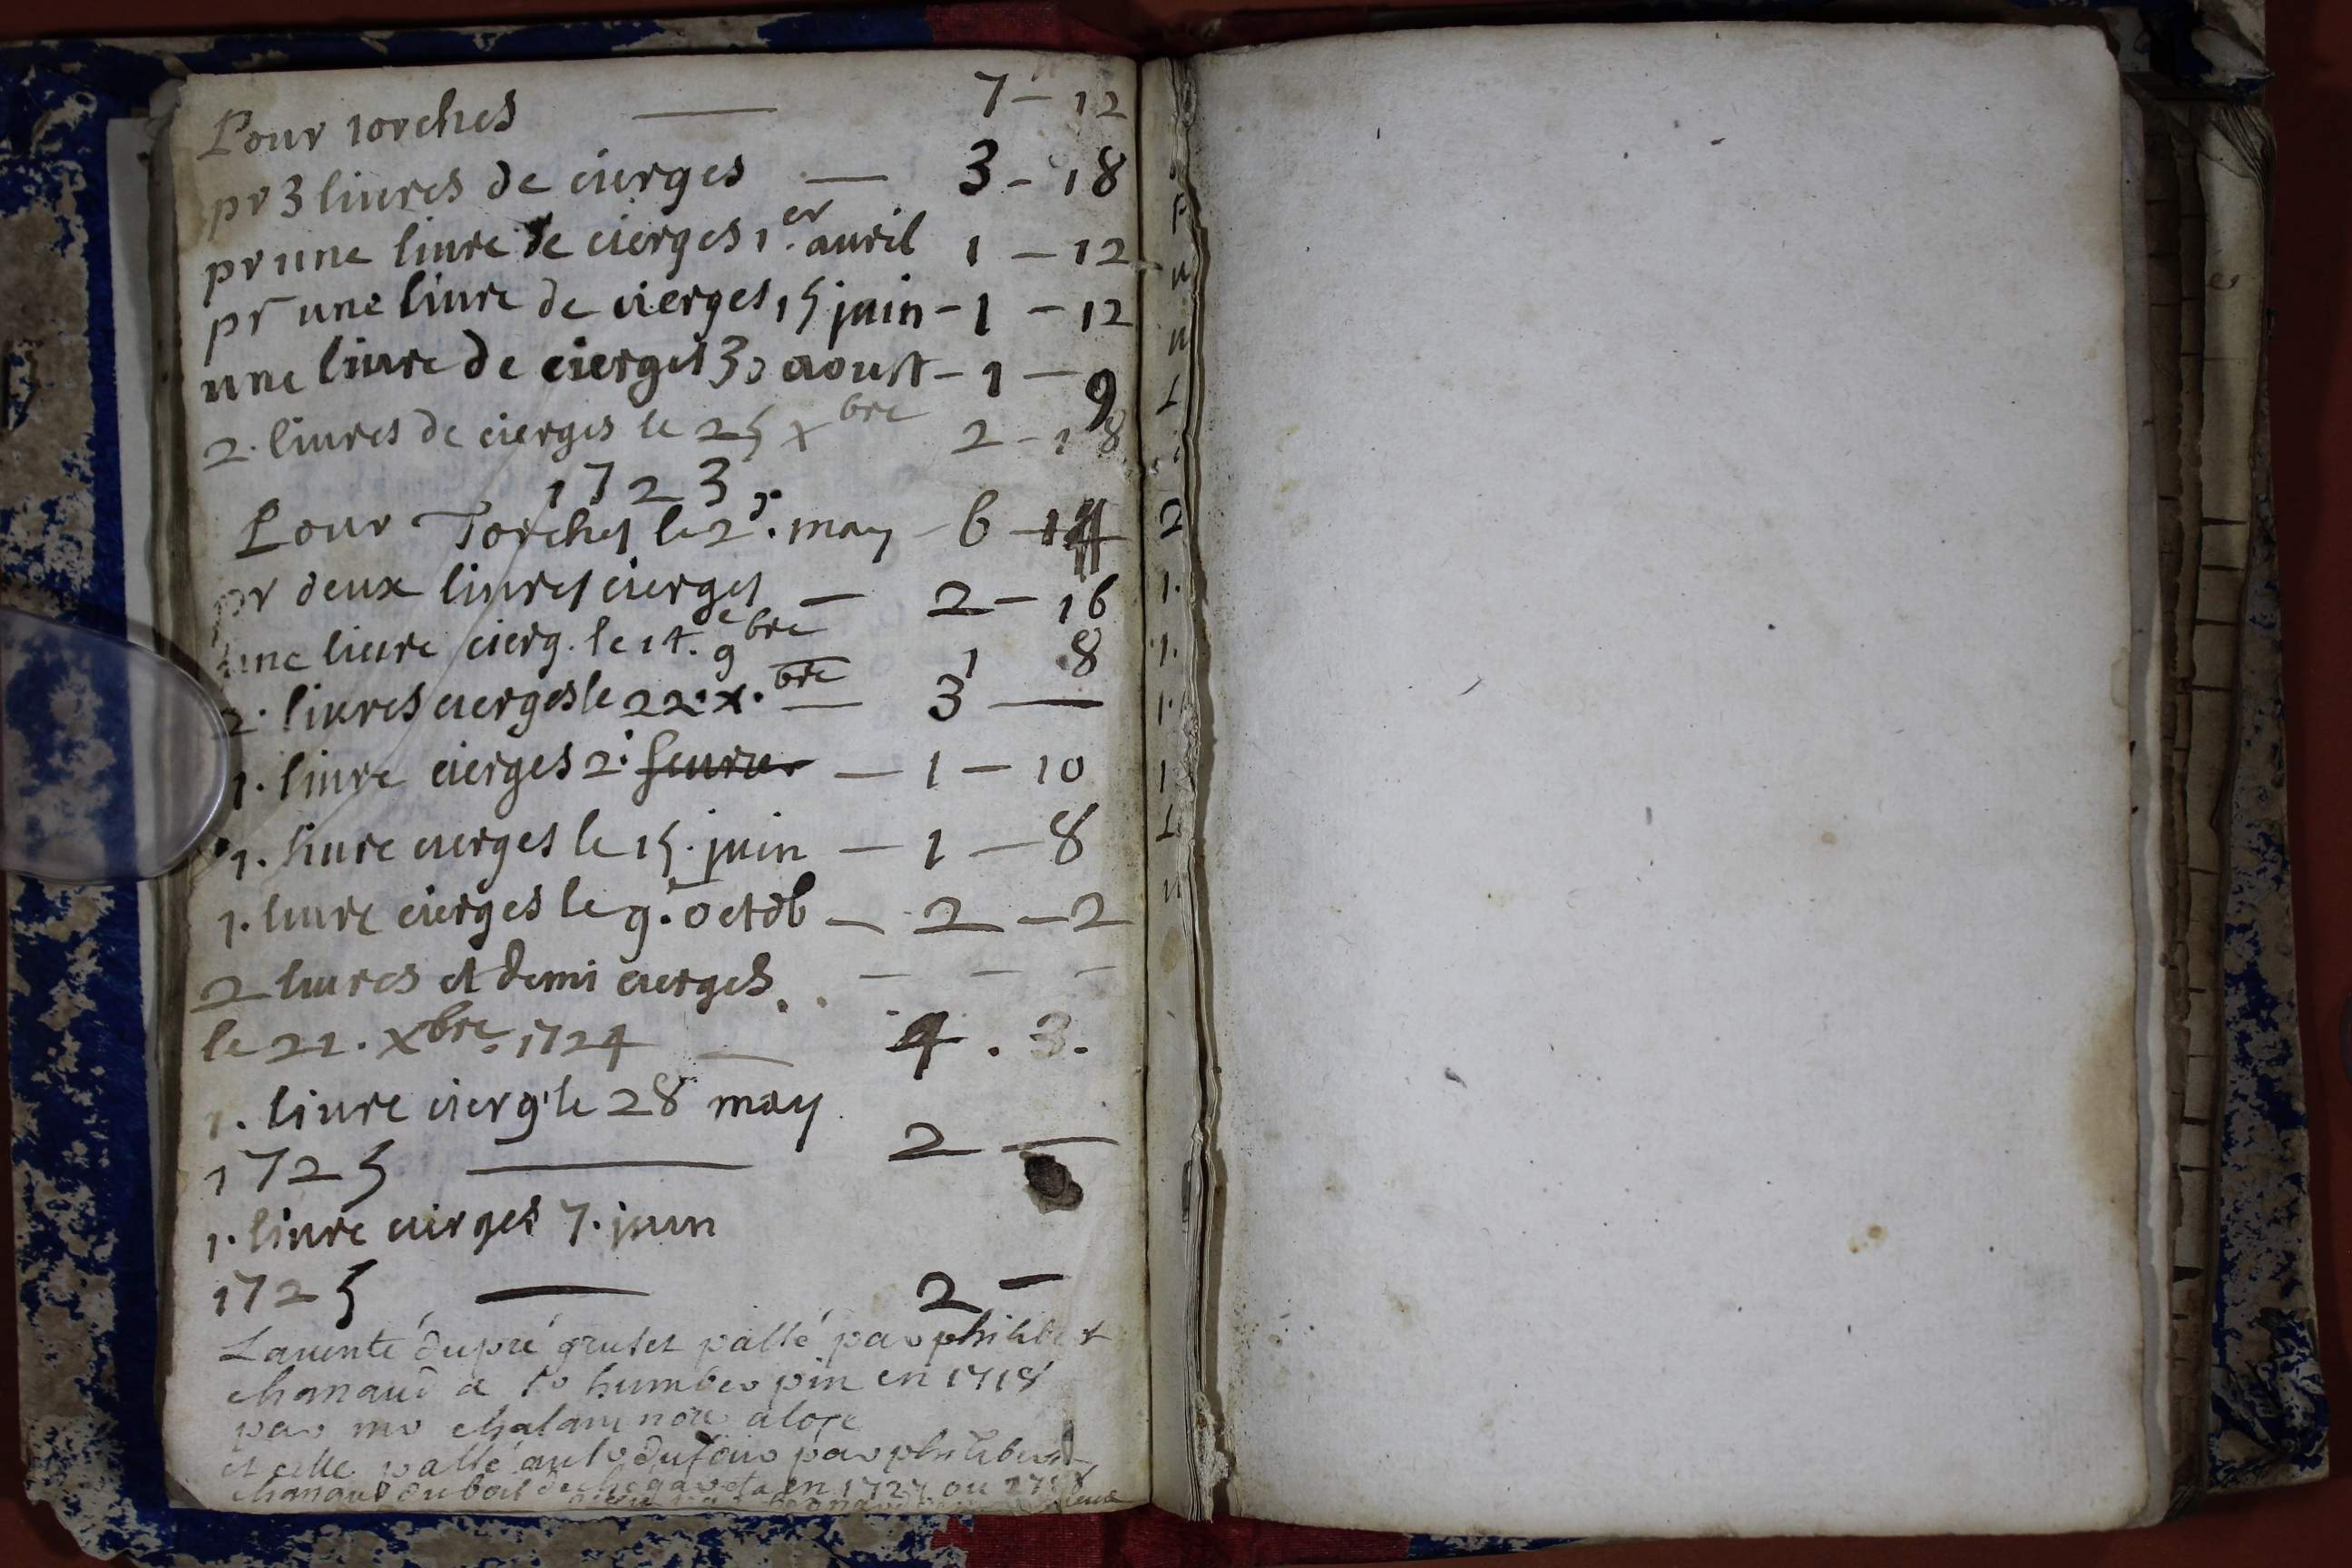 Pour torches — 7 - 12
pr 3 liures de cierges — 3 - 18
pr une liure de cierges 1.er auril 1 - 12
pr une liure de cierges 15 juin - 1 - 12
une liure de cierges 30 aoust - 1 - 9
2. liures de cierges le 25 xbre 2 - 18
1723
Pour Torches le 2d. may - 6
pr deux liures cierges — 2 - 16
une liure cierg. le 14.e 9bre 1 8
2. liures cierges le 22. x.bre — 3 —
1. liure cierges 2. feurier — 1 - 10
1. liure cierges le 15. juin — 1 - 8
1. liure cierges le 9. octob — 2 - 2
2 liures et demi cierges. . - - -
le 22. Xbre. 1724 — 4 . 3.
1. liure cierg. le 28 may
1725 — 2 —
1. liure cierges 7. juin
1725 — 2 -
La uente du pré grutet passé par philibert
chanaud a humber pin en 1718
par mr chalam
et celle passé par philibert
chanaud du bois en 1727 ou